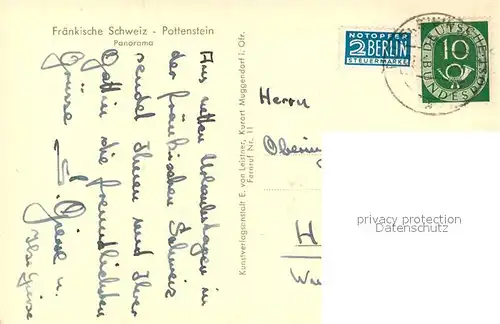 Fränkische Schweiz - Pottenstein
Panorama
Aus netten Urlaubstagen in
der fränkischen Schweiz
sendet Ihnen und Ihrer
Gattin die freundlichsten
Grüße
Giese u.
Ilse Giese
Kunstverlagsanstalt E. von Leistner, Kurort Muggendorf i. Ofr.
Fernruf Nr. 11
NOTOPFER
2 BERLIN
STEUERMARKE
10
DEUTSCHE
BUNDESPOST
Herrn
privacy protection
oldthing.de